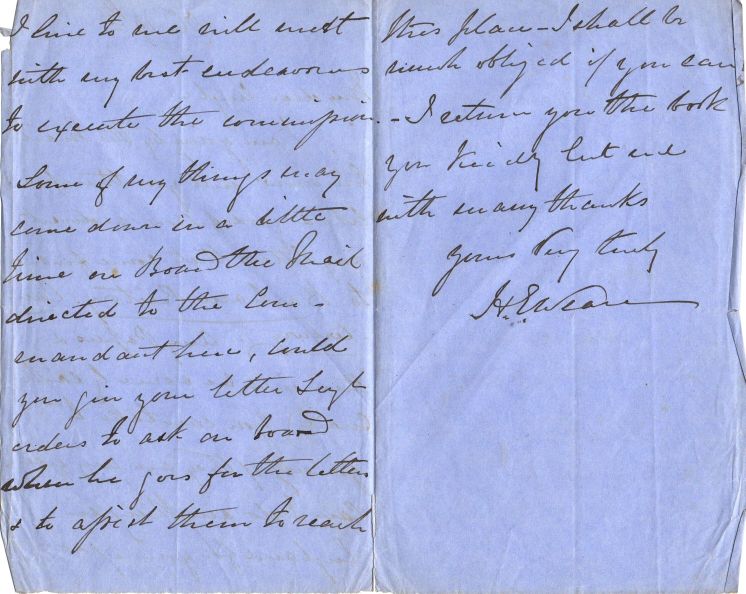 I line to me will meet
with my best endeavours
to execute the commission.
Some of my things may
come down in a little
time on Board the Mail
directed to the Com-
mandant here, could
you give your letter Sergt
orders to ask on board
when he goes for the letters
& to assist them to reach
this place - I shall be
much obliged if you can
- I return you the book
you kindly lent me
with many thanks
yours very truly
H. E.